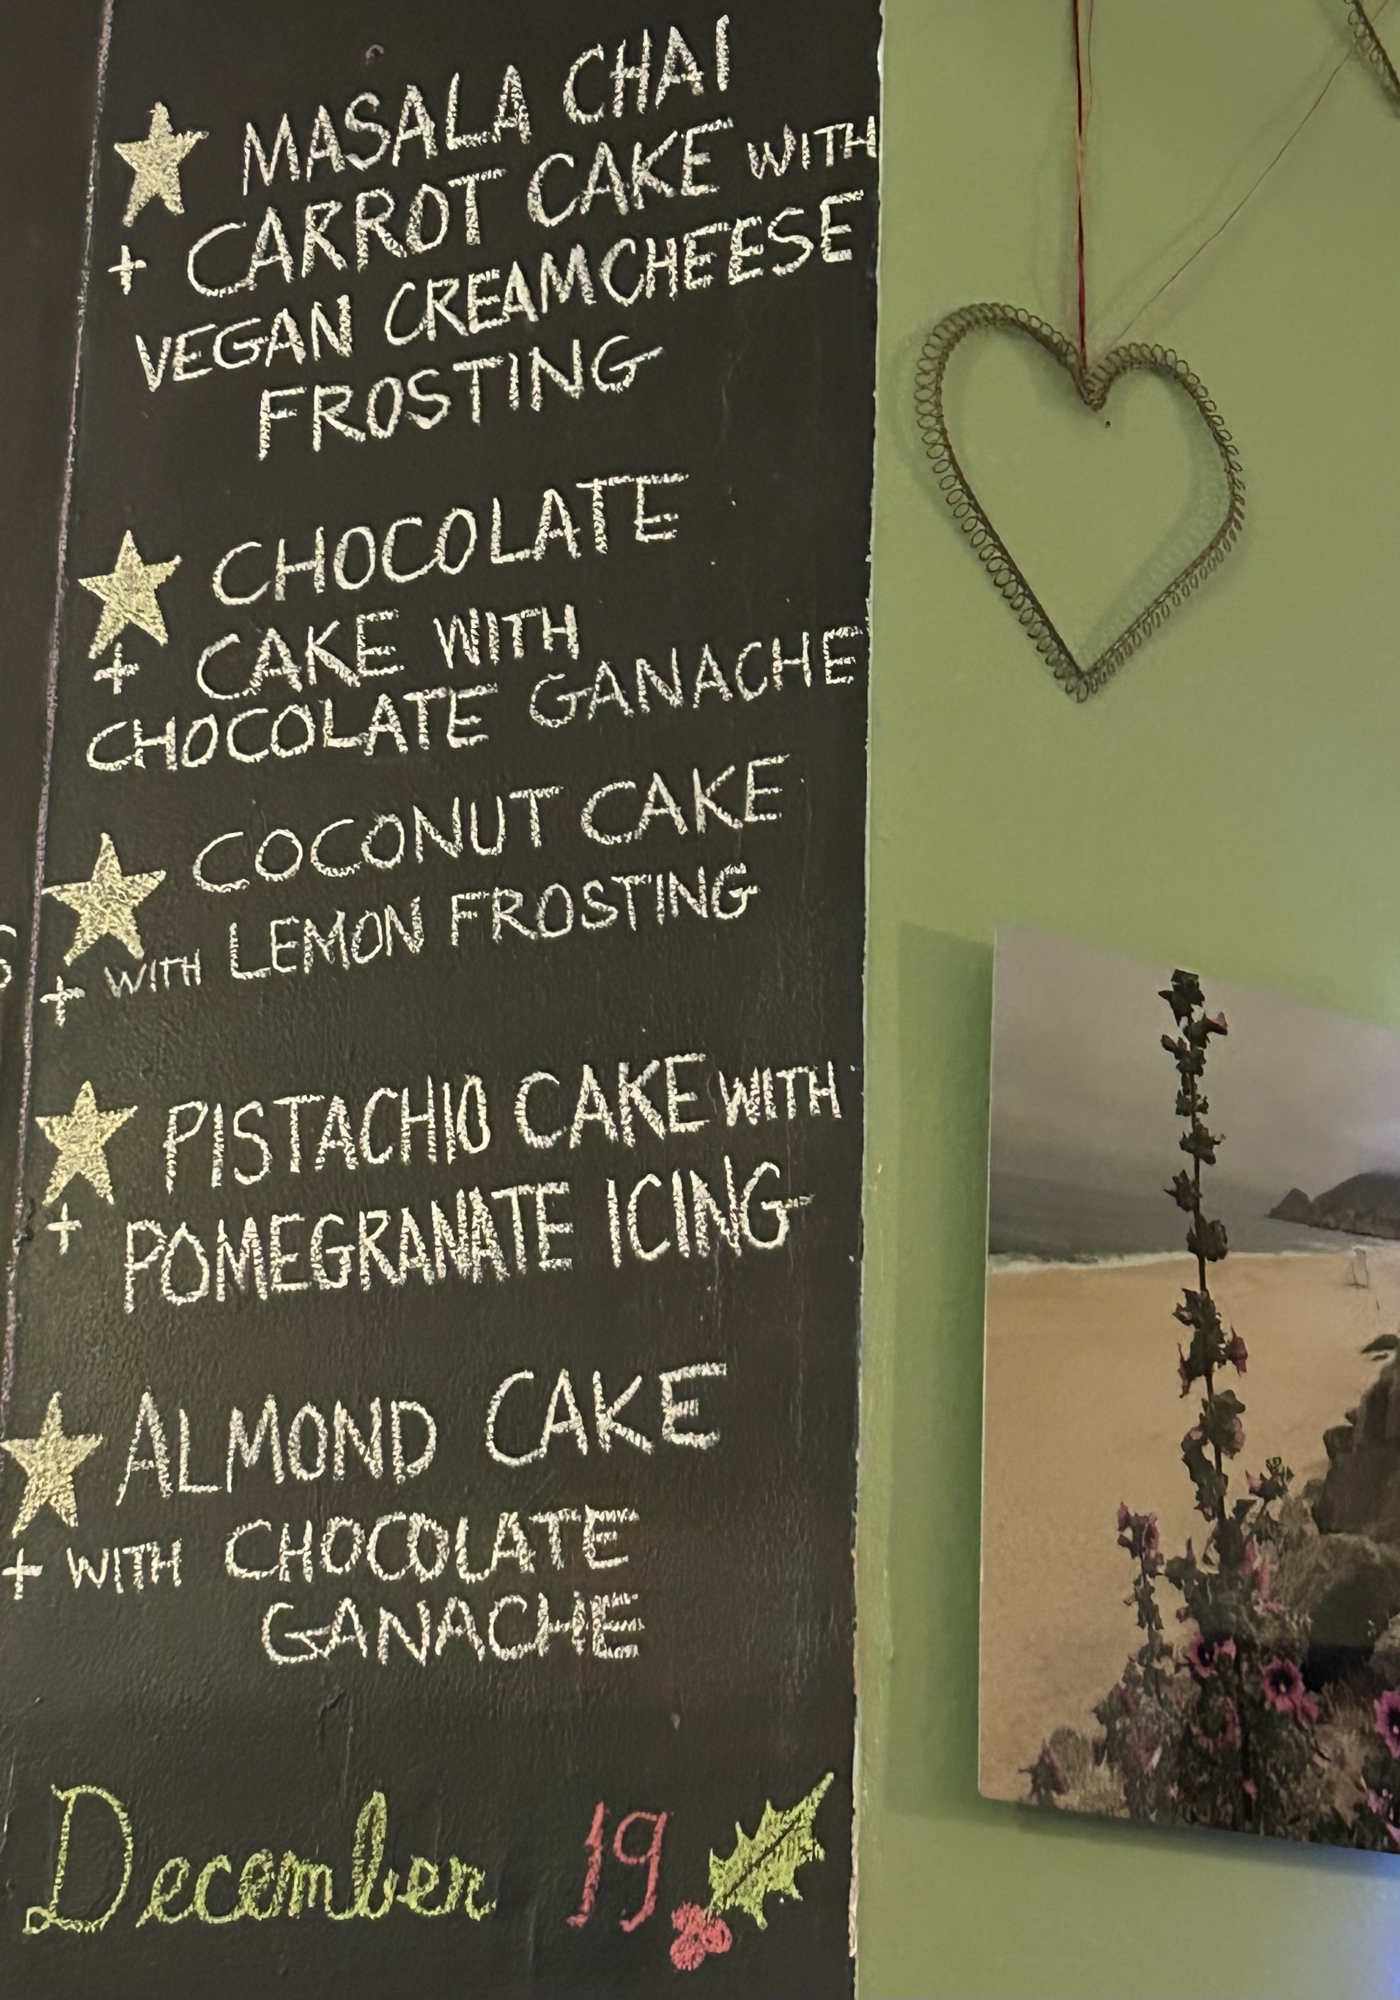 MASALA CHAI
+ CARROT CAKE WITH
VEGAN CREAMCHEESE
FROSTING
CHOCOLATE
+ CAKE WITH
CHOCOLATE GANACHE
COCONUT CAKE
+ WITH LEMON FROSTING
PISTACHIO CAKE WITH
+ POMEGRANATE ICING
ALMOND CAKE
+ WITH CHOCOLATE
GANACHE
December 19